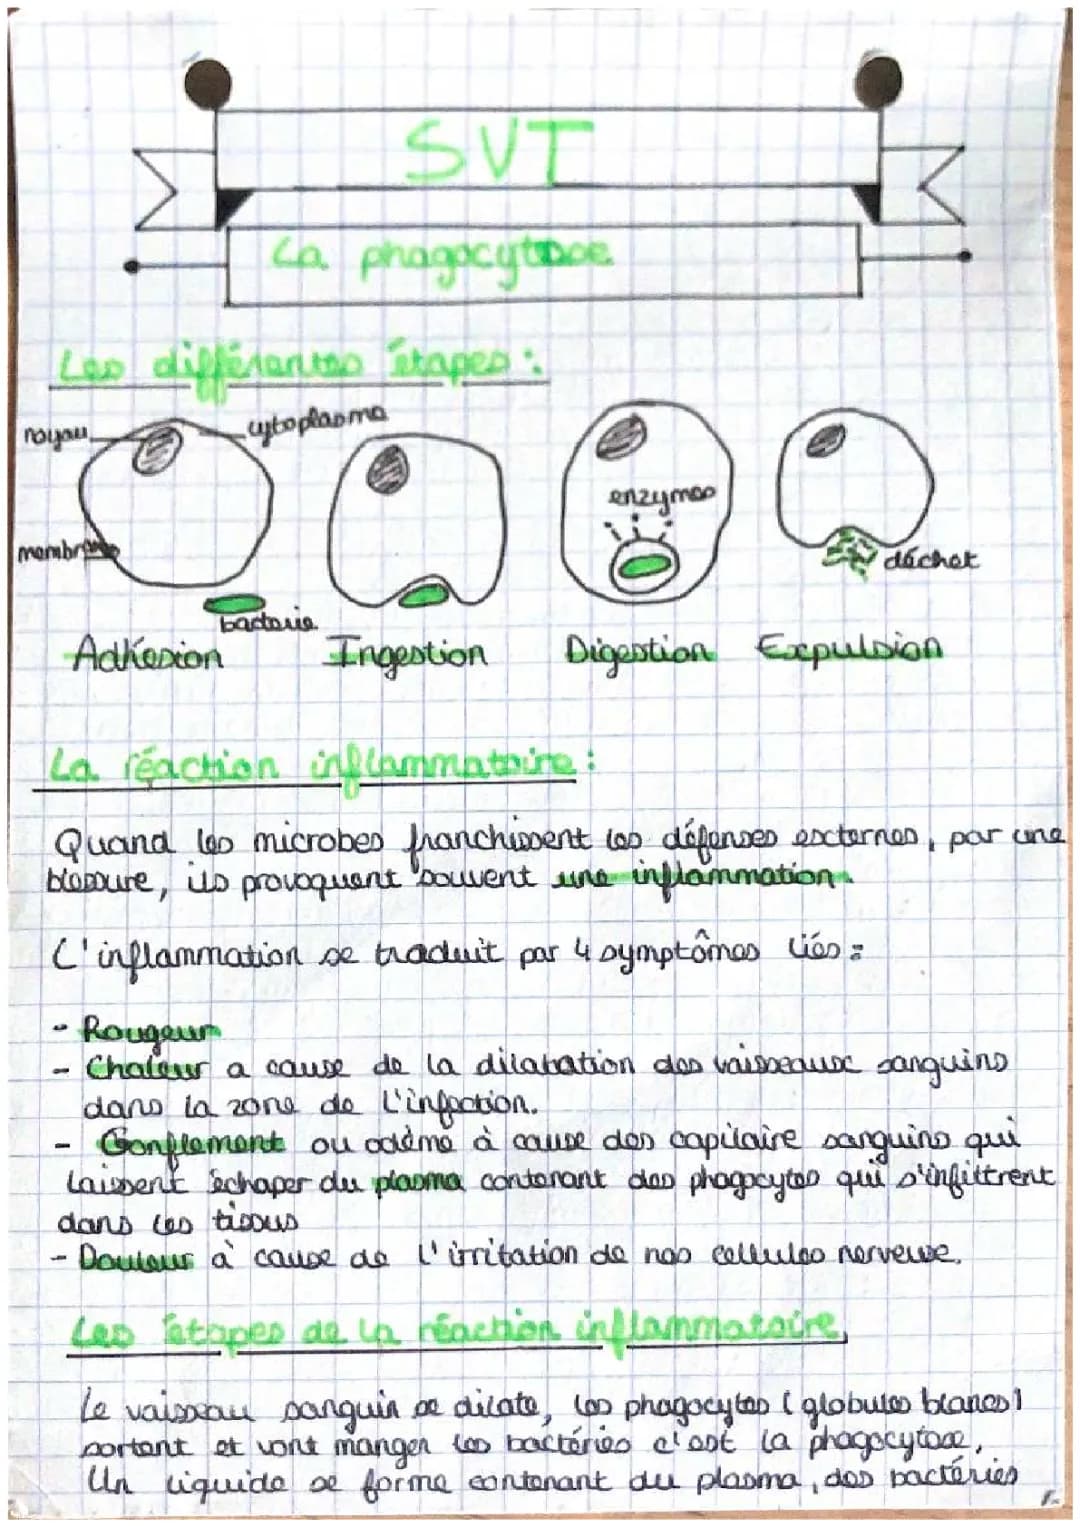 SVT
La phagocytose
Les différentes étapes :
noyau
cytoplasma
membrane
bacterie
enzymes
déchet
Adhésion
Ingestion
Digestion
Expulsion
La réaction inflammatoire :
Quand les microbes franchissent les défenses externes, par une
blessure, ils provoquent souvent une inflammation.
L'inflammation se traduit par 4 symptômes liés :
- Rougeur
- Chaleur a cause de la dilatation des vaisseaux sanguins
dans la zone de l'infection.
- Gonflement ou odème à cause des capilaire sanguins qui
laissent échaper du plasma contenant des phagocytes qui s'infiltrent
dans les tissus
- Douleur à cause de l'irritation de nos cellules nerveuse.
Les étapes de la réaction inflammatoire
Le vaisseau sanguin se dilate, les phagocytes (globules blancs)
sortent et vont manger les bactéries c'est la phagocytose.
Un liquide se forme contenant du plasma, des bactéries